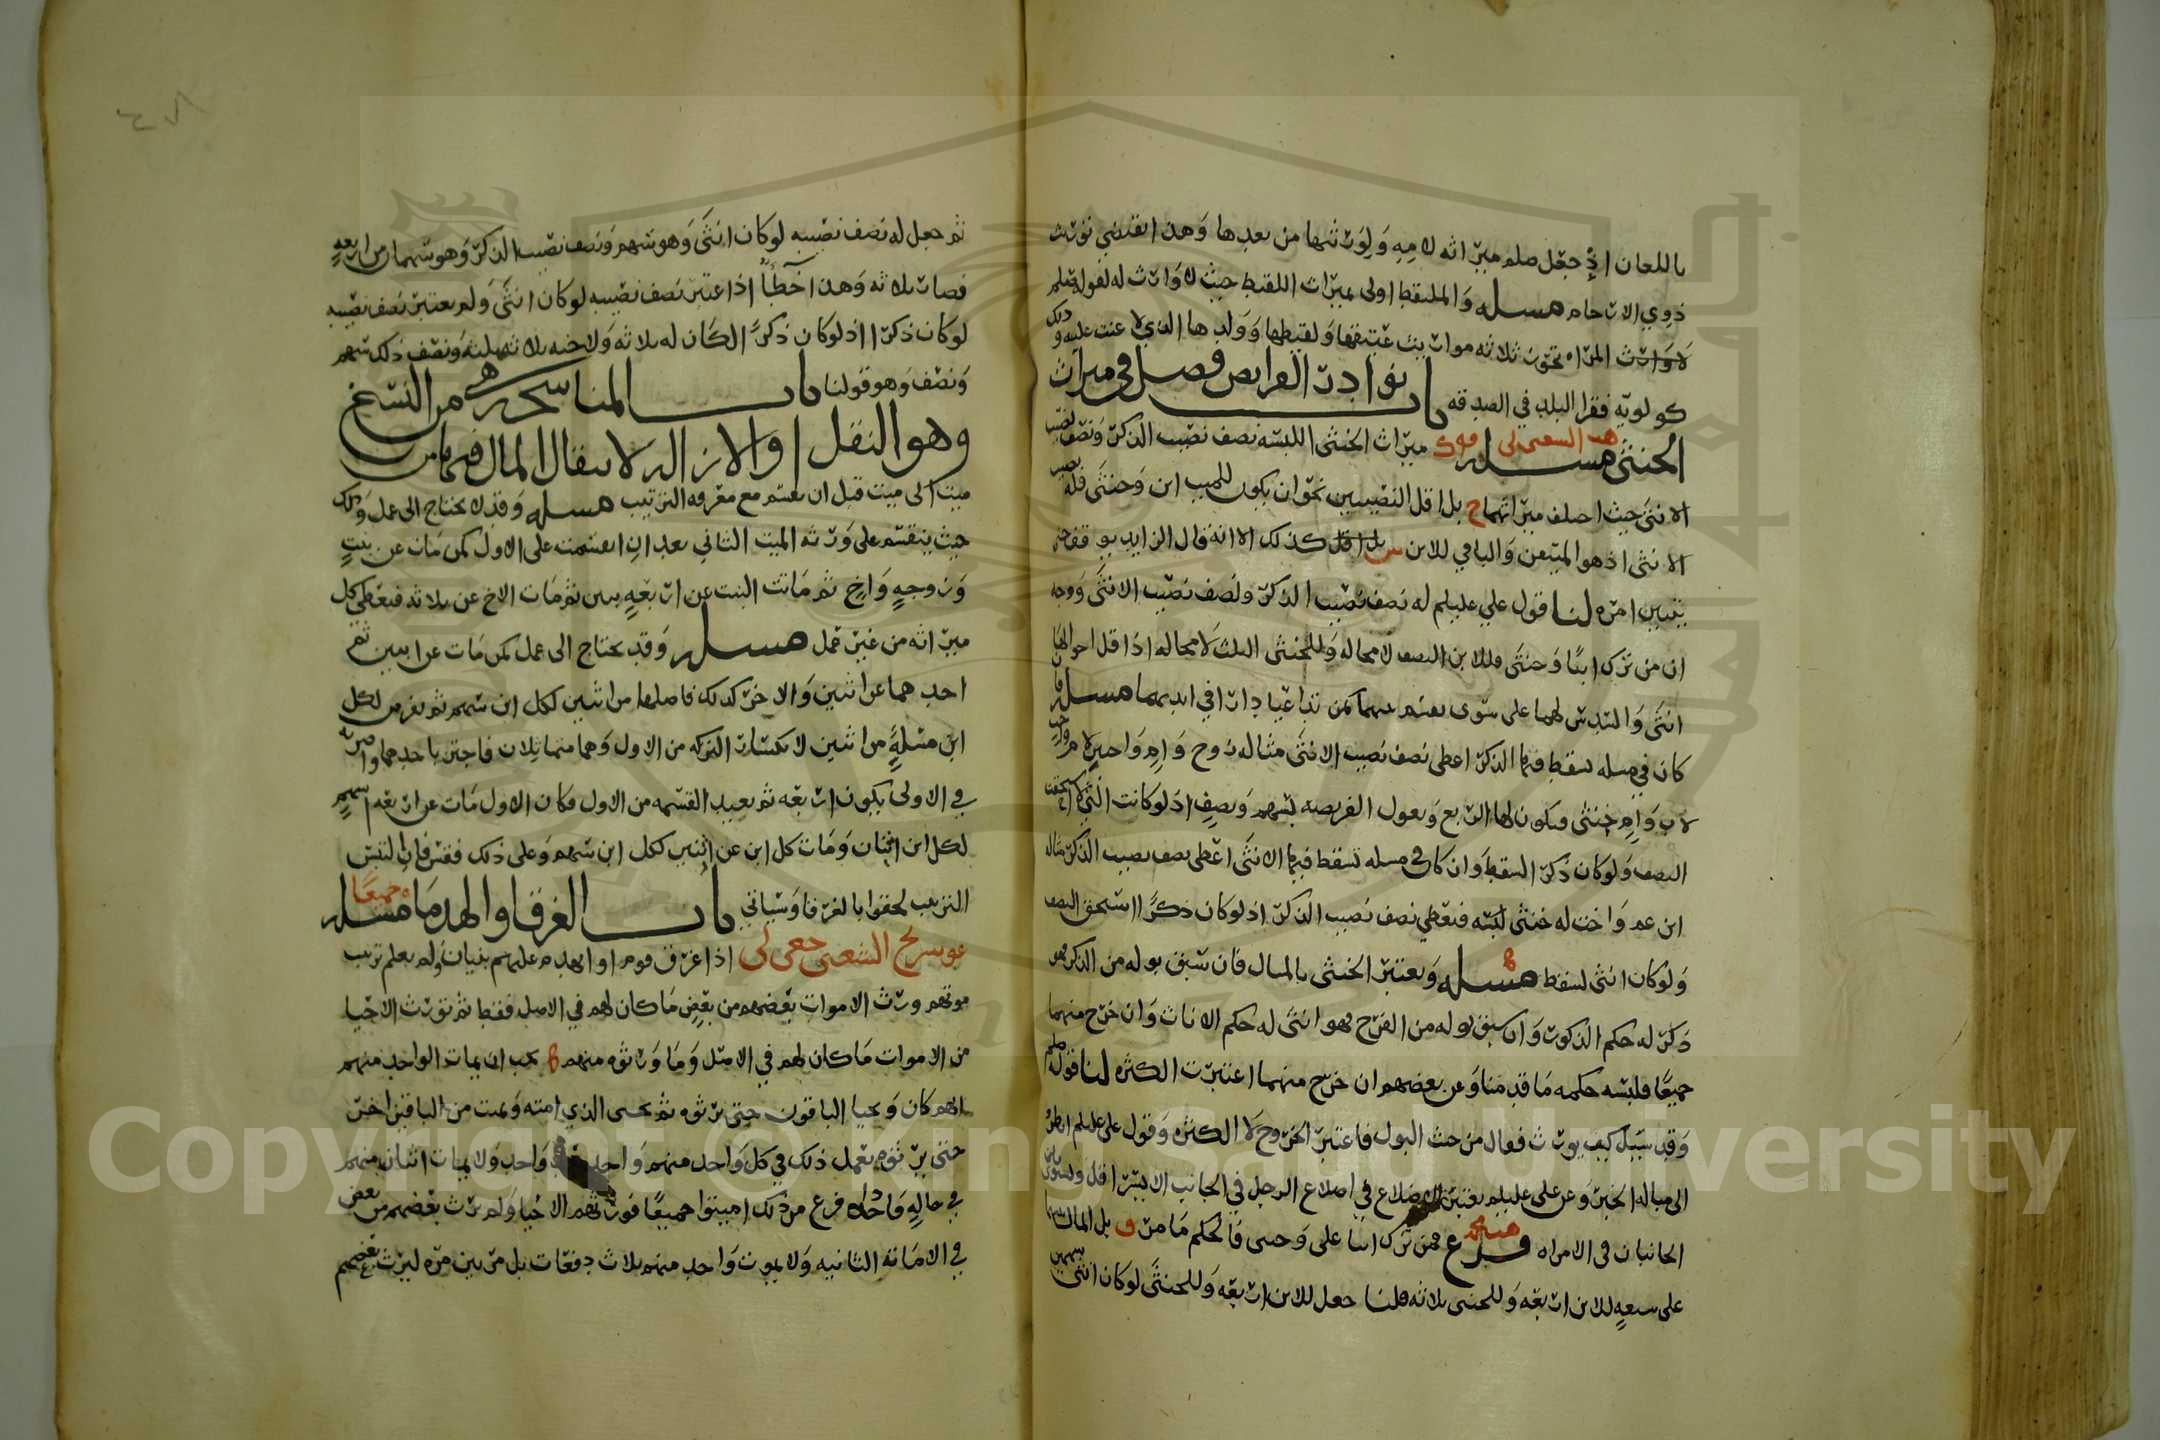 باللعان إذ جعل صلم ميراثه لامه ولورثتها من بعدها وهذا يقتضي تورث
ذوي الارحام مسله والملتقط اولى بميراث اللقيط حيث لا وارث له لقوله صلم
المراه تحوز ثلاثه مواريث عتيقها ولقيطها وولدها الذي لا عنت عليه و
كو لويه فقرا البلد في الصدقه باب نوادر الفرايض فصل في ميراث
الخنثى مسله ميراث الخنثى اللبسه نصف نصيب الذكر ونصف نصيب
الانثى حيث اختلف ميراثهما ح بل اقل النصيبين نحو ان يكون للميت ابن وخنثى فله
الانثى اذ هو المتيقن والباقي للابن كذلك الا انه قال الزايد يوقف حتى
يتبين امره لنا قول علي عليلم له نصف نصيب الذكر ونصف نصيب الانثى ووجه
ان من ترك ابنا وخنثى فللابن النصف لا محاله وللخنثى الثلث لا محاله اذ اقل احواله
انثى والسدس لهما على سوى يقسم بينهما كمن تداعيا دارا في ايديهما مسله
كان في مسله يسقط فيها الذكر اعطي نصف نصيب الانثى مثاله زوج وام واخوين لام
لاب وام خنثى فيكون لها الربع وتعول الفريضه بسهم ونصف اذ لو كانت انثى
النصف ولو كان ذكرا لسقط وان كان في مسله تسقط فيها الانثى اعطي نصف نصيب الذكر مثاله
ابن عم واخت له خنثى لبسه فيعطي نصف نصيب الذكر اذ لو كان ذكرا استحق النصف
ولو كان انثى لسقط مسله ويعتبر الخنثى بالمبال فان سبق بوله من الذكر فهو
ذكر له حكم الذكور وان سبق بوله من الفرج فهو انثى له حكم الاناث وان خرج منهما
جميعا فلبسه حكمه ما قدمنا وعن بعضهم ان خرج منهما اعتبرت الكثره لنا قوله صلم
وقد سيل كيف يورث فقال من حيث البول فاعتبر الخروج لا الكثره وقول علي عليلم انظروا
الى مباله الخبر وعن علي عليلم يعتبر الاضلاع في اضلاع الرجل في الجانب الايسر اقل ويستوي
الجانبان في الامراه فرع فمن ترك ابنا وخنثى فالحكم ما مر ف بل المال
على سبعه للابن اربعه وللخنثى ثلاثه قلنا جعل للابن اربعه وللخنثى لو كان انثى سهمين
ثم جعل له نصف نصيبه لو كان انثى وهو سهم ونصف نصيب الذكر وهو سهمان من اربعه
فصار ثلاثه وهذا خطأ اذ اعتبر نصف نصيبه لو كان انثى ولم يعتبر نصف نصيبه
لو كان ذكرا اذ لو كان ذكرا لكان له ثلاثه ولاخيه ثلاثه ونصف ذلك سهم
ونصف وهو قولنا باب المناسخه هي من النسخ
وهو النقل او الازاله لانتقال المال فيها من
ميت الى ميت قبل ان يقسم مع معرفه الترتيب مسله وقد لا يحتاج الى عمل وذلك
حيث ينقسم على ورثه الميت الثاني بعد ان انقسمت على الاول كمن مات عن بنت
وزوجه واخ ثم ماتت البنت عن اربعه بنين ثم مات الاخ عن ثلاثه فيعطي كل
ميراثه من غير عمل مسله وقد يحتاج الى عمل كمن مات عن ابنين ثم
احدهما عن اثنين والاخر كذلك فاصلها من اثنين لكل ابن سهم ثم يفرض لكل
ابن مسله من اثنين لانكسار التركه من الاول وهما متماثلان فاجتز باحدهما واضربه
في الاولى يكون اربعه ثم تعيد القسمه من الاول فكان الاول مات عن اربعه اسهم
لكل ابن اثنان ومات كل ابن عن اثنين لكل ابن سهم وعلى ذلك فقس فان التبس
الترتيب لحقوا بالغرقا وسياتي باب الغرقا والهدما مسله جميعا
اذا غرق قوم او انهدم عليهم بنيان ولم يعلم ترتيب
موتهم ورث الاموات بعضهم من بعض ما كان لهم في الاصل فقط ثم تورث الاحيا
من الاموات ما كان لهم في الاصل وما ورثوه منهم يجب ان يمات الواحد منهم
ايهم كان ويحيا الباقون حتى يرثوه ثم يحيى الذي امته وتميت من الباقين اخر
حتى يرثوه يعمل ذلك في كل واحد منهم واحد واحد ولا يمات اثنان منهم
في حاله واحده فرع من ذلك اميتوا جميعا فورثهم الاحيا ولم يرث بعضهم من بعض
في الاماته الثانيه ولا يموت واحد منهم ثلاث دفعات بل مرتين مره ليرث بعضهم
Copyright © King Saud University